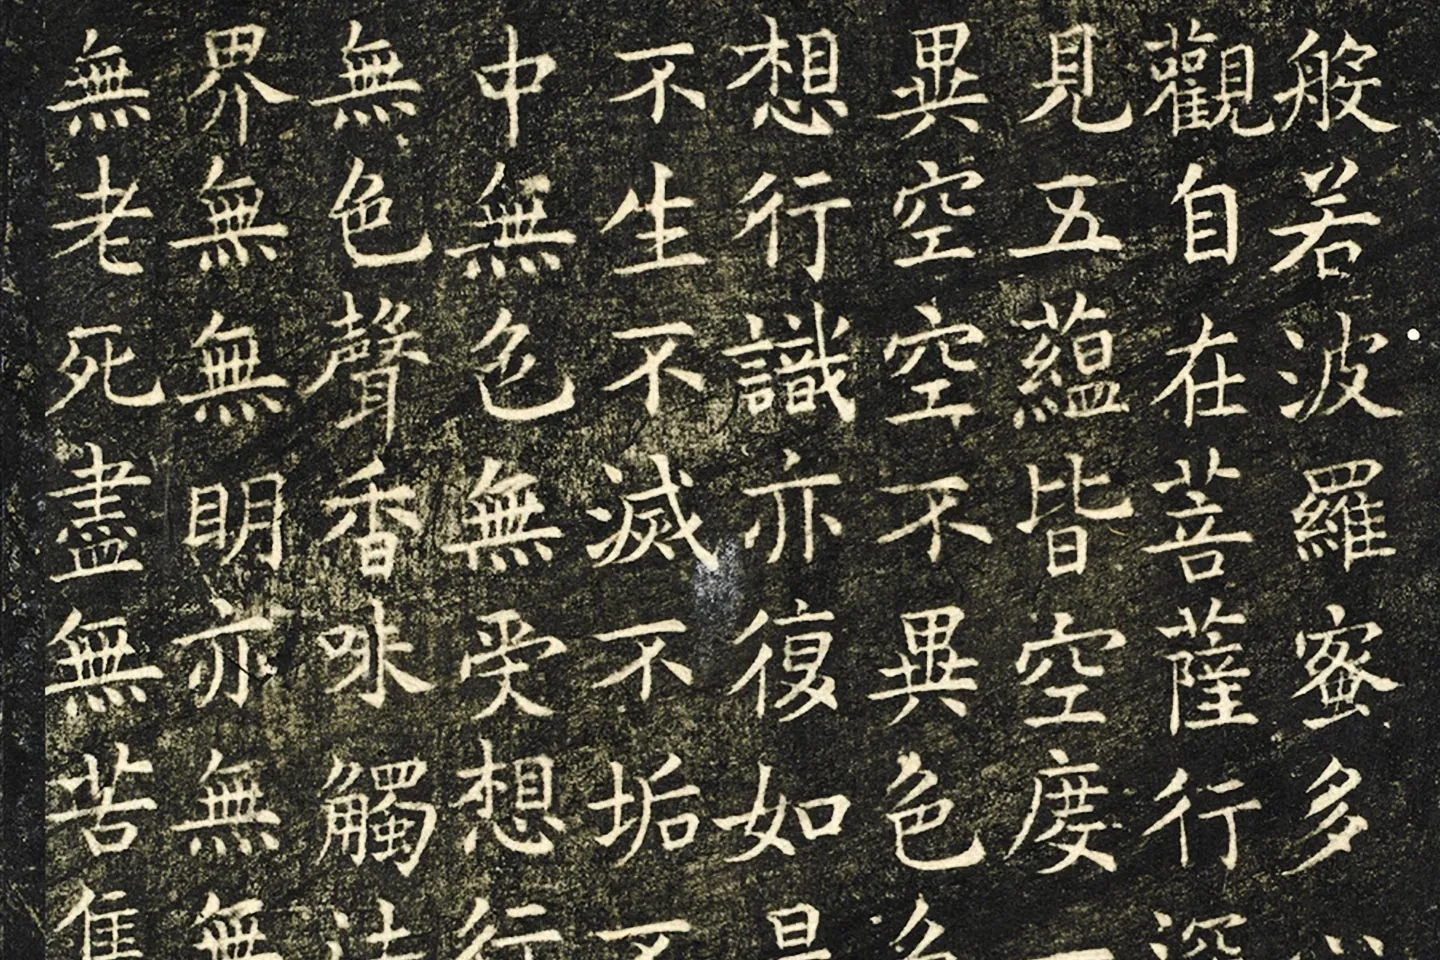 般若波羅蜜多心
觀自在菩薩行深
見五蘊皆空度一
異空空不異色色
想行識亦復如是
不生不滅不垢不
中無色無受想行
無色聲香味觸法
界無無明亦無無
無老死盡無苦集